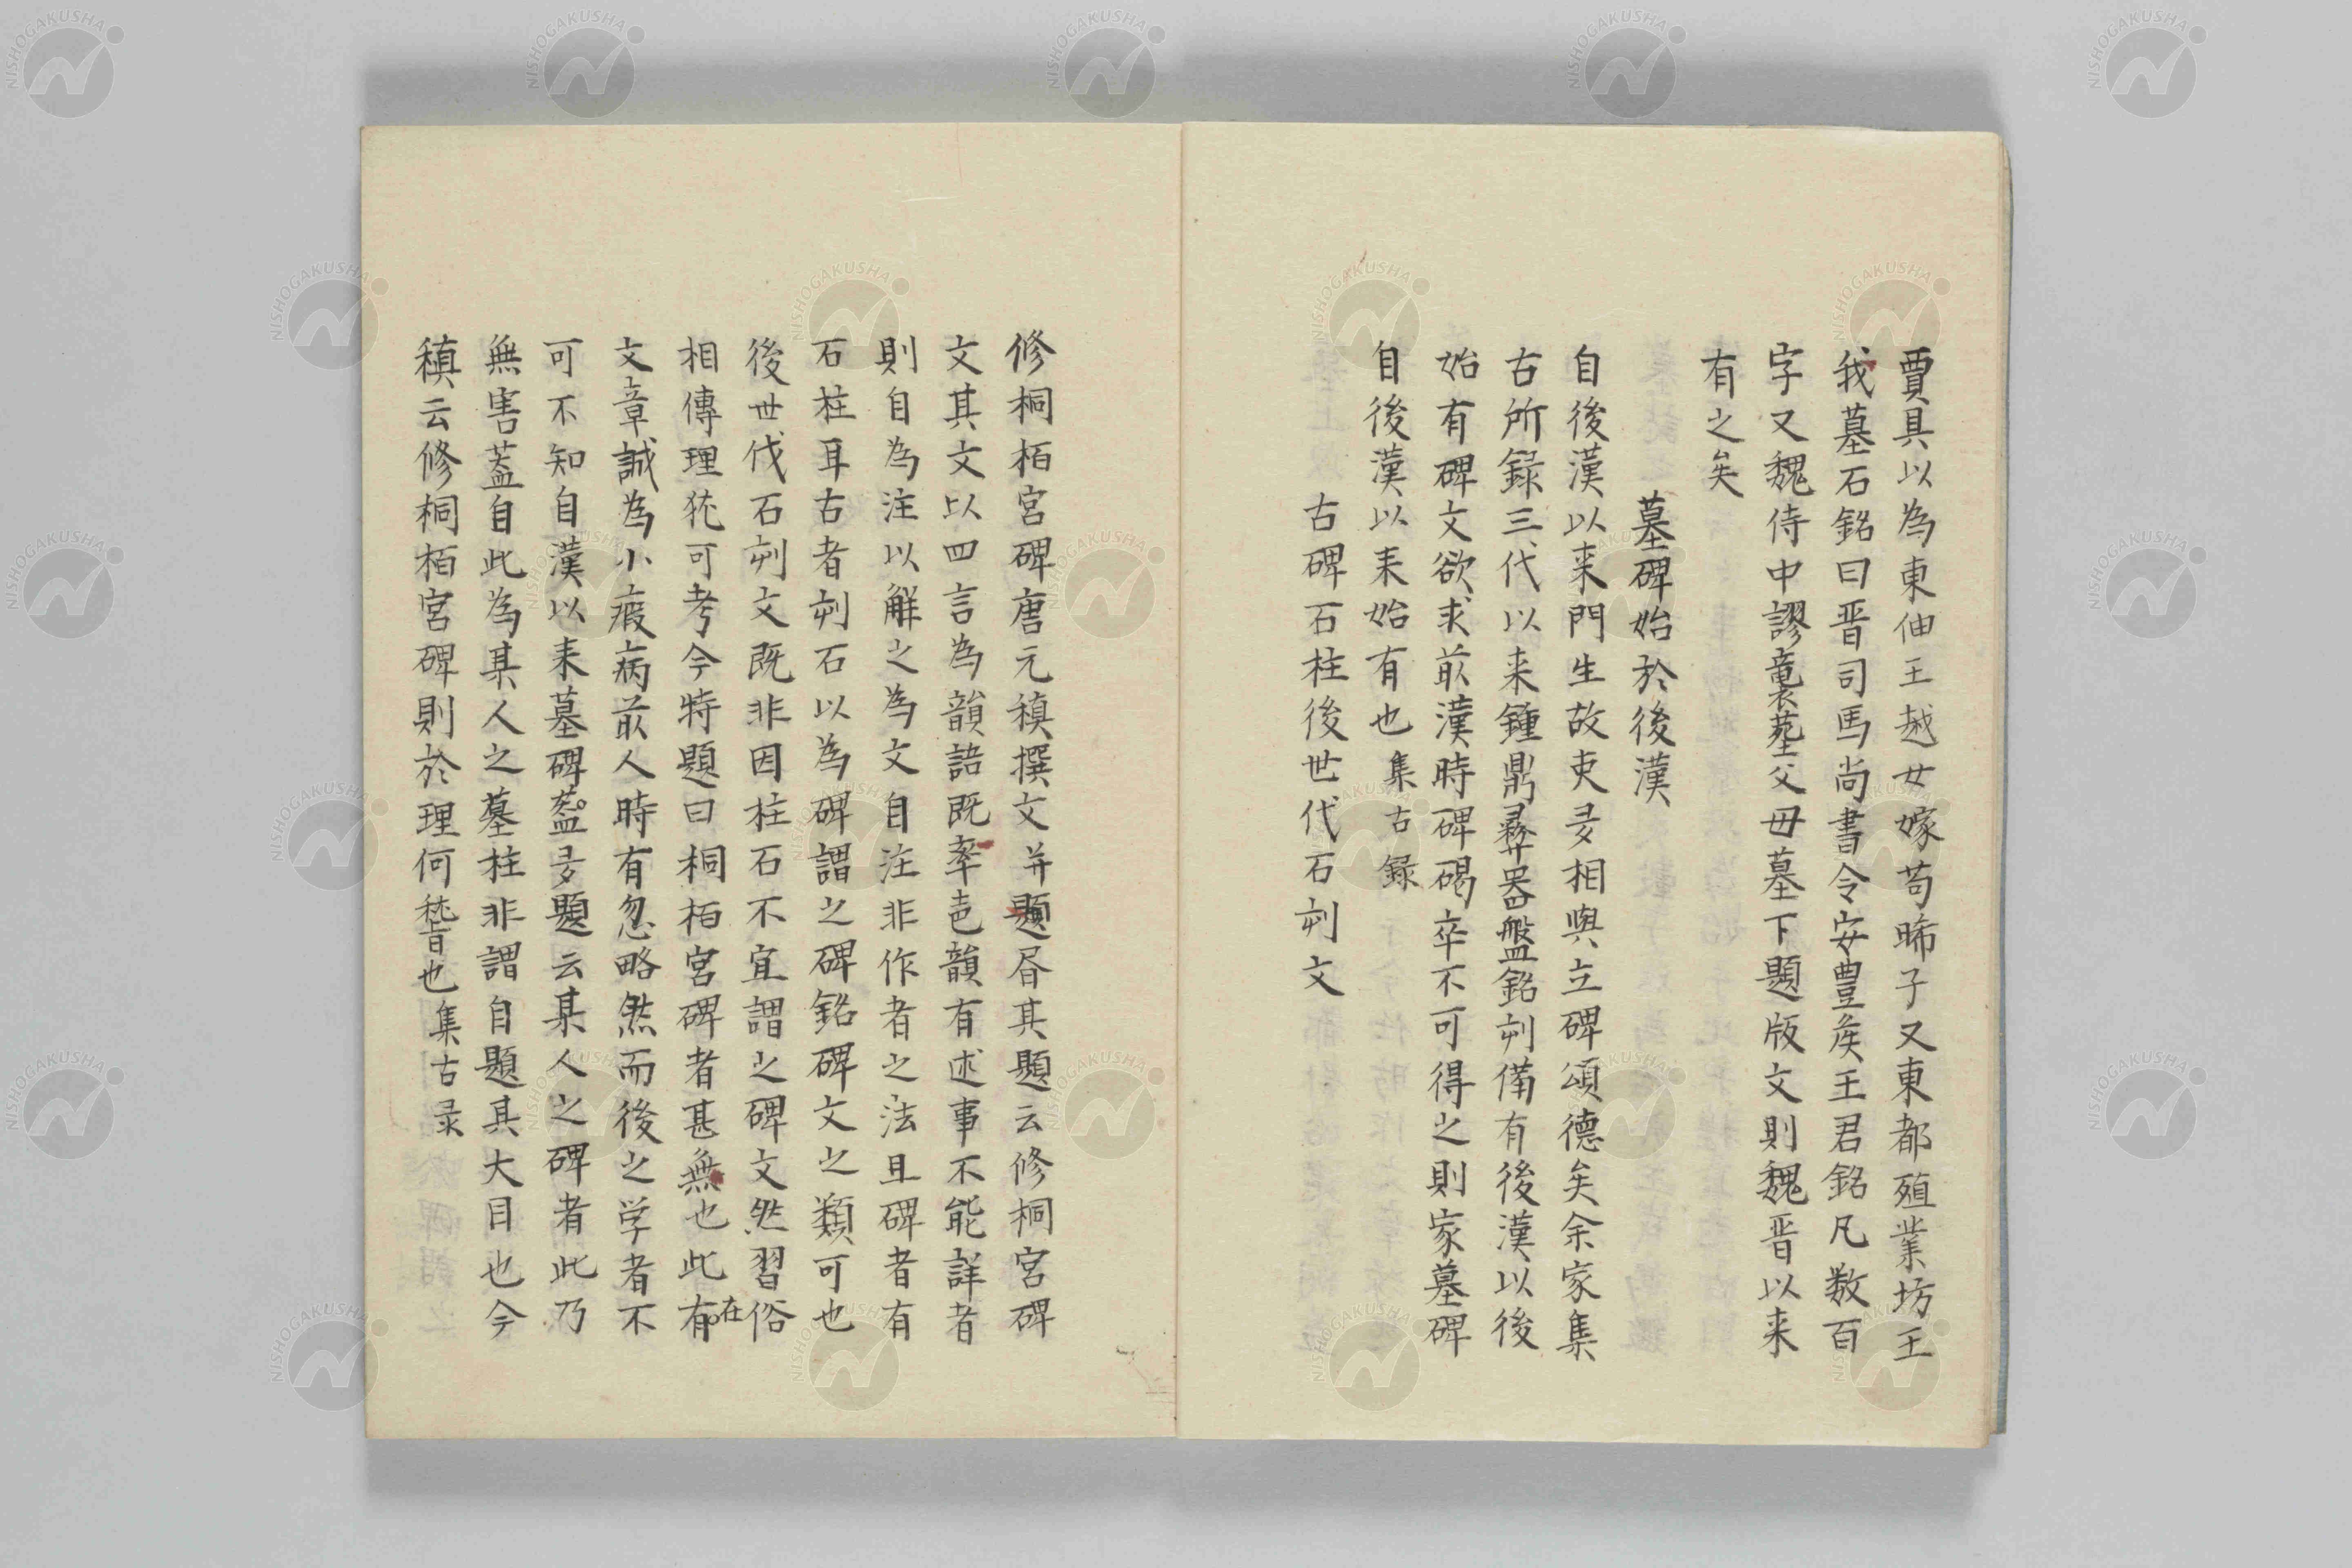 賈具以為東伷王越女嫁苟晞子又東都殖業坊王
我墓石銘曰晋司馬尚書令安豊侯王君銘凡数百
字又魏侍中謬襲葬父毋墓下題版文則魏晋以来
有之矣
墓碑始於後漢
自後漢以来門生故吏多相與立碑頌德矣余家集
古所録三代以来鍾鼎彛器盤銘刻備有後漢以後
始有碑文欲求前漢時碑碣卒不可得之則冢墓碑
自後漢以来始有也 集古録
古碑石柱後世代石刻文
修桐栢宮碑唐元稹撰文并題㫺其題云修桐宮碑
文其文以四言為韻語既牽邑韻有述事不能詳者
則自為注以解之為文自注非作者之法且碑者有
石柱耳古者刻石以為碑謂之碑銘碑文之類可也
後世伐石刻文既非因柱石不宜謂之碑文然習俗
相傳理犹可考今特題曰桐栢宮碑者甚無也此有在
文章誠為小瘕病前人時有忽略然而後之学者不
可不知自漢以来墓碑葢多題云某人之碑者此乃
無害葢自此為某人之墓柱非謂自題其大目也今
稹云修桐栢宮碑則於理何嵆也 集古录
NISHOGAKUSHA